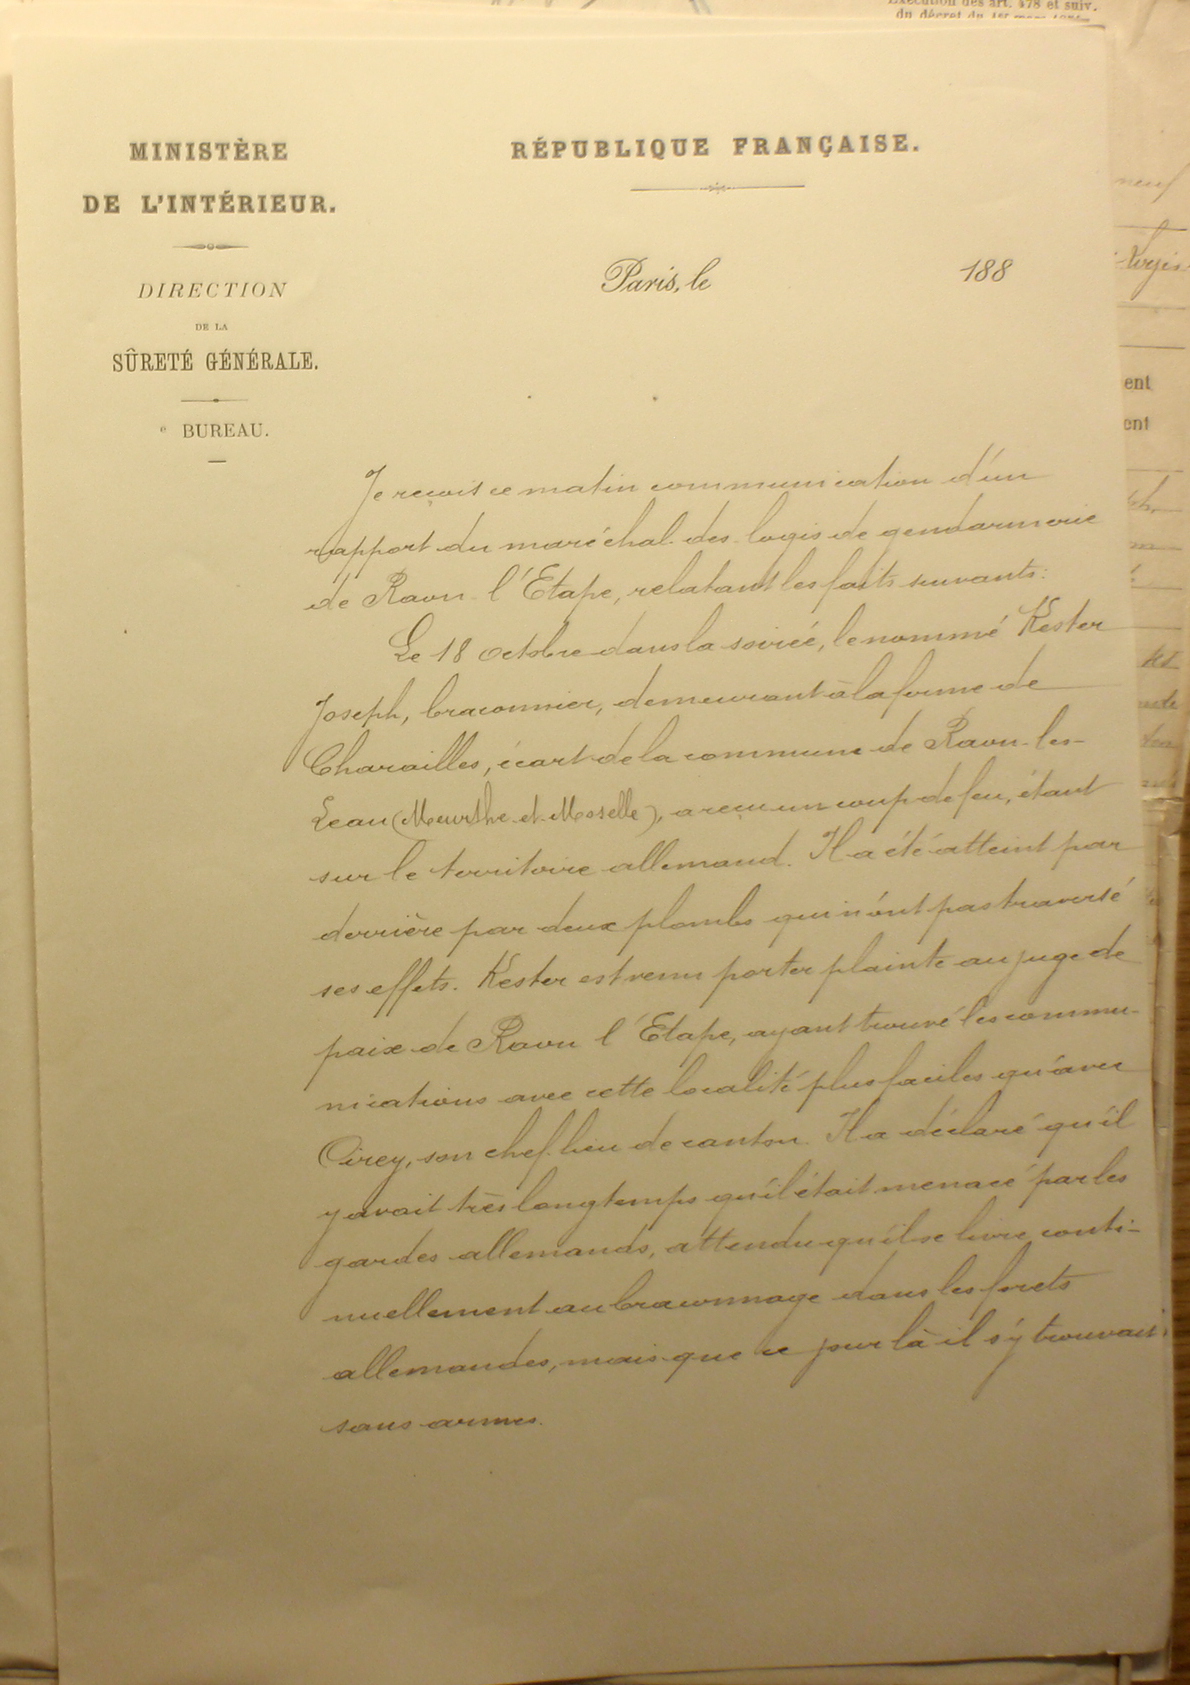 Exécution des art. 478 et suiv.
du décret du 1er mars
MINISTÈRE
DE L'INTÉRIEUR.
DIRECTION
DE LA
SÛRETÉ GÉNÉRALE.
e BUREAU.
RÉPUBLIQUE FRANÇAISE.
Paris, le 188
Je reçois ce matin communication d'un
rapport du maréchal des logis de gendarmerie
de Raon l'Etape, relatant les faits suivants:
Le 18 octobre dans la soirée, le nommé Kester
Joseph, braconnier, demeurant à la ferme de
Charailles, écart de la commune de Raon-les-
Leau (Meurthe et Moselle), a reçu un coup de feu, étant
sur le territoire allemand. Il a été atteint par
derrière par deux plombs qui n'ont pas traversé
ses effets. Kester est venu porter plainte au juge de
paix de Raon l'Etape, ayant trouvé les commu-
nications avec cette localité plus faciles qu'avec
Cirey, son chef lieu de canton. Il a déclaré qu'il
y avait très longtemps qu'il était menacé par les
gardes allemands, attendu qu'il se livre conti-
nuellement au braconnage dans les forets
allemandes, mais que ce jour là il s'y trouvait
sans armes.
neuf
logis
ent
ent